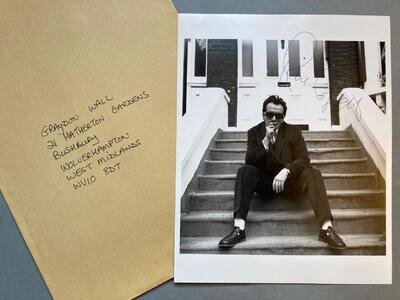 GRAYDON WALL
21 HATHERTON GARDENS
BUSHBURY
WOLVERHAMPTON
WEST MIDLANDS
WV10 8DT